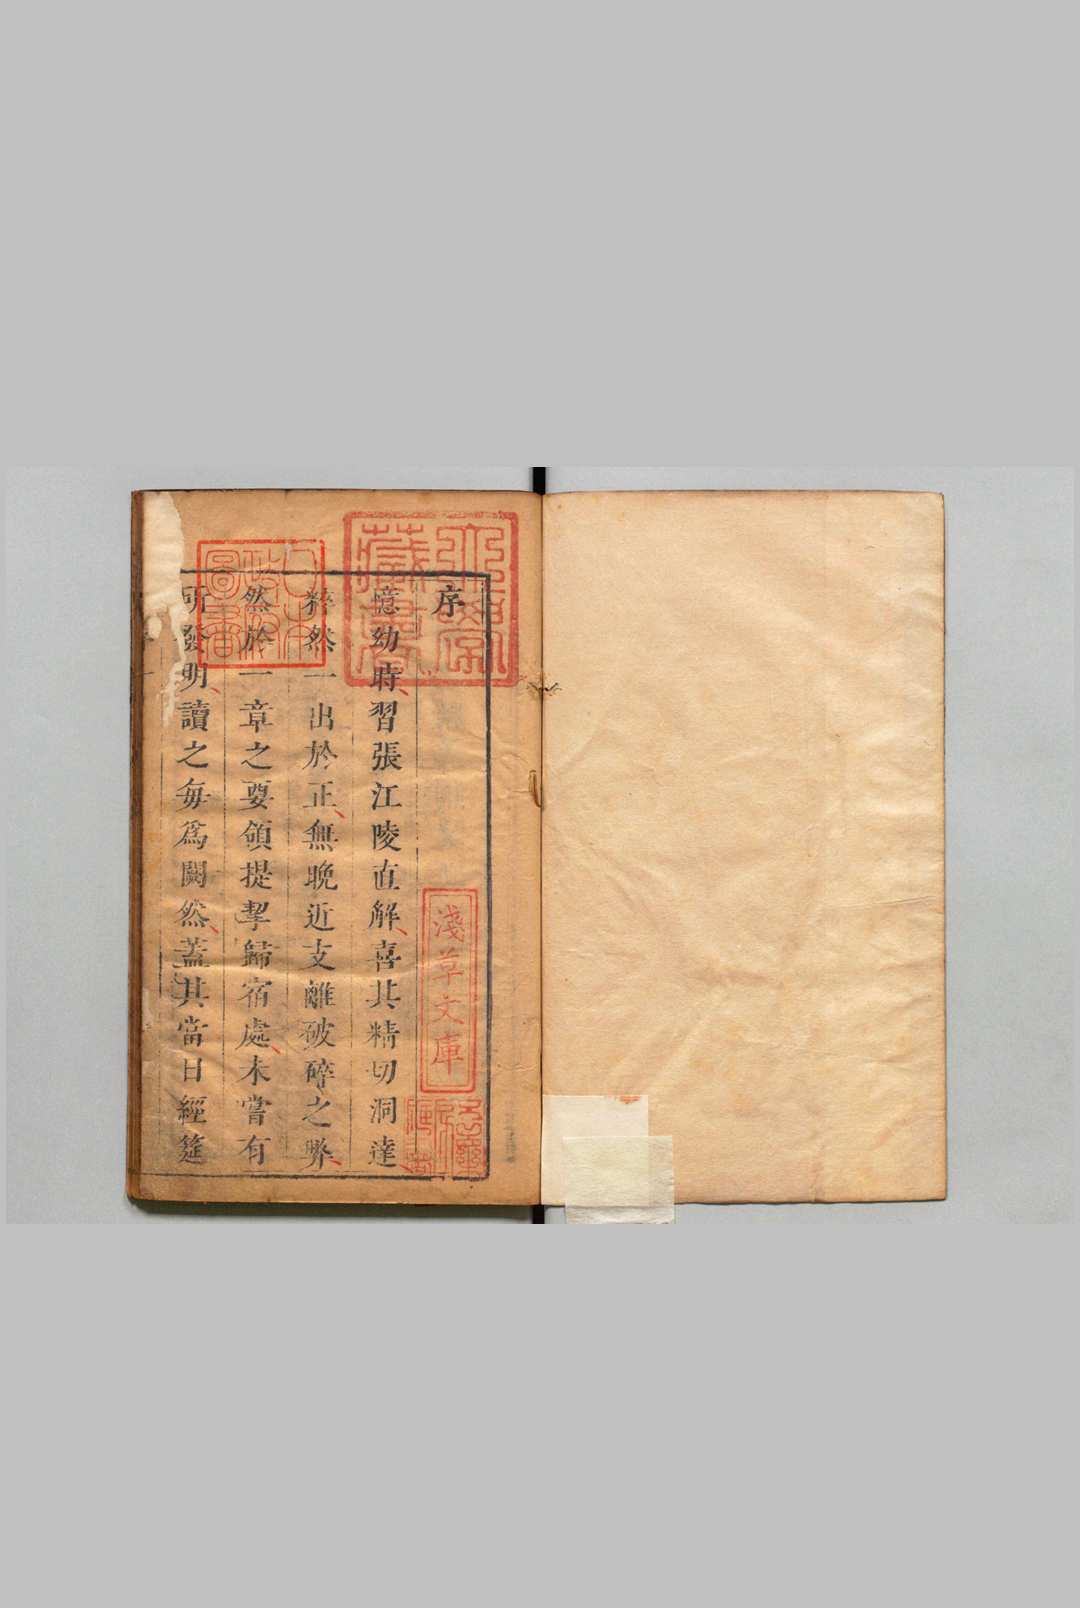 序
憶幼時習張江陵直解喜其精切洞達
粹然一出於正無晚近支離破碎之弊
然於一章之要領提挈歸宿處未嘗有
所發明讀之每爲闕然蓋其當日經筵
淺草文庫
日本政府圖書
藏書